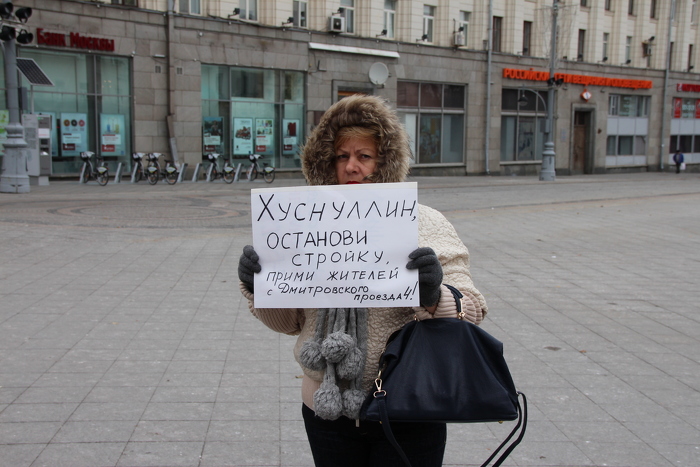 Банк Москвы
Хуснуллин,
ОСТАНОВИ
СТРОЙКУ,
ПРИМИ ЖИТЕЛЕЙ
с Дмитровского
проезда 4!